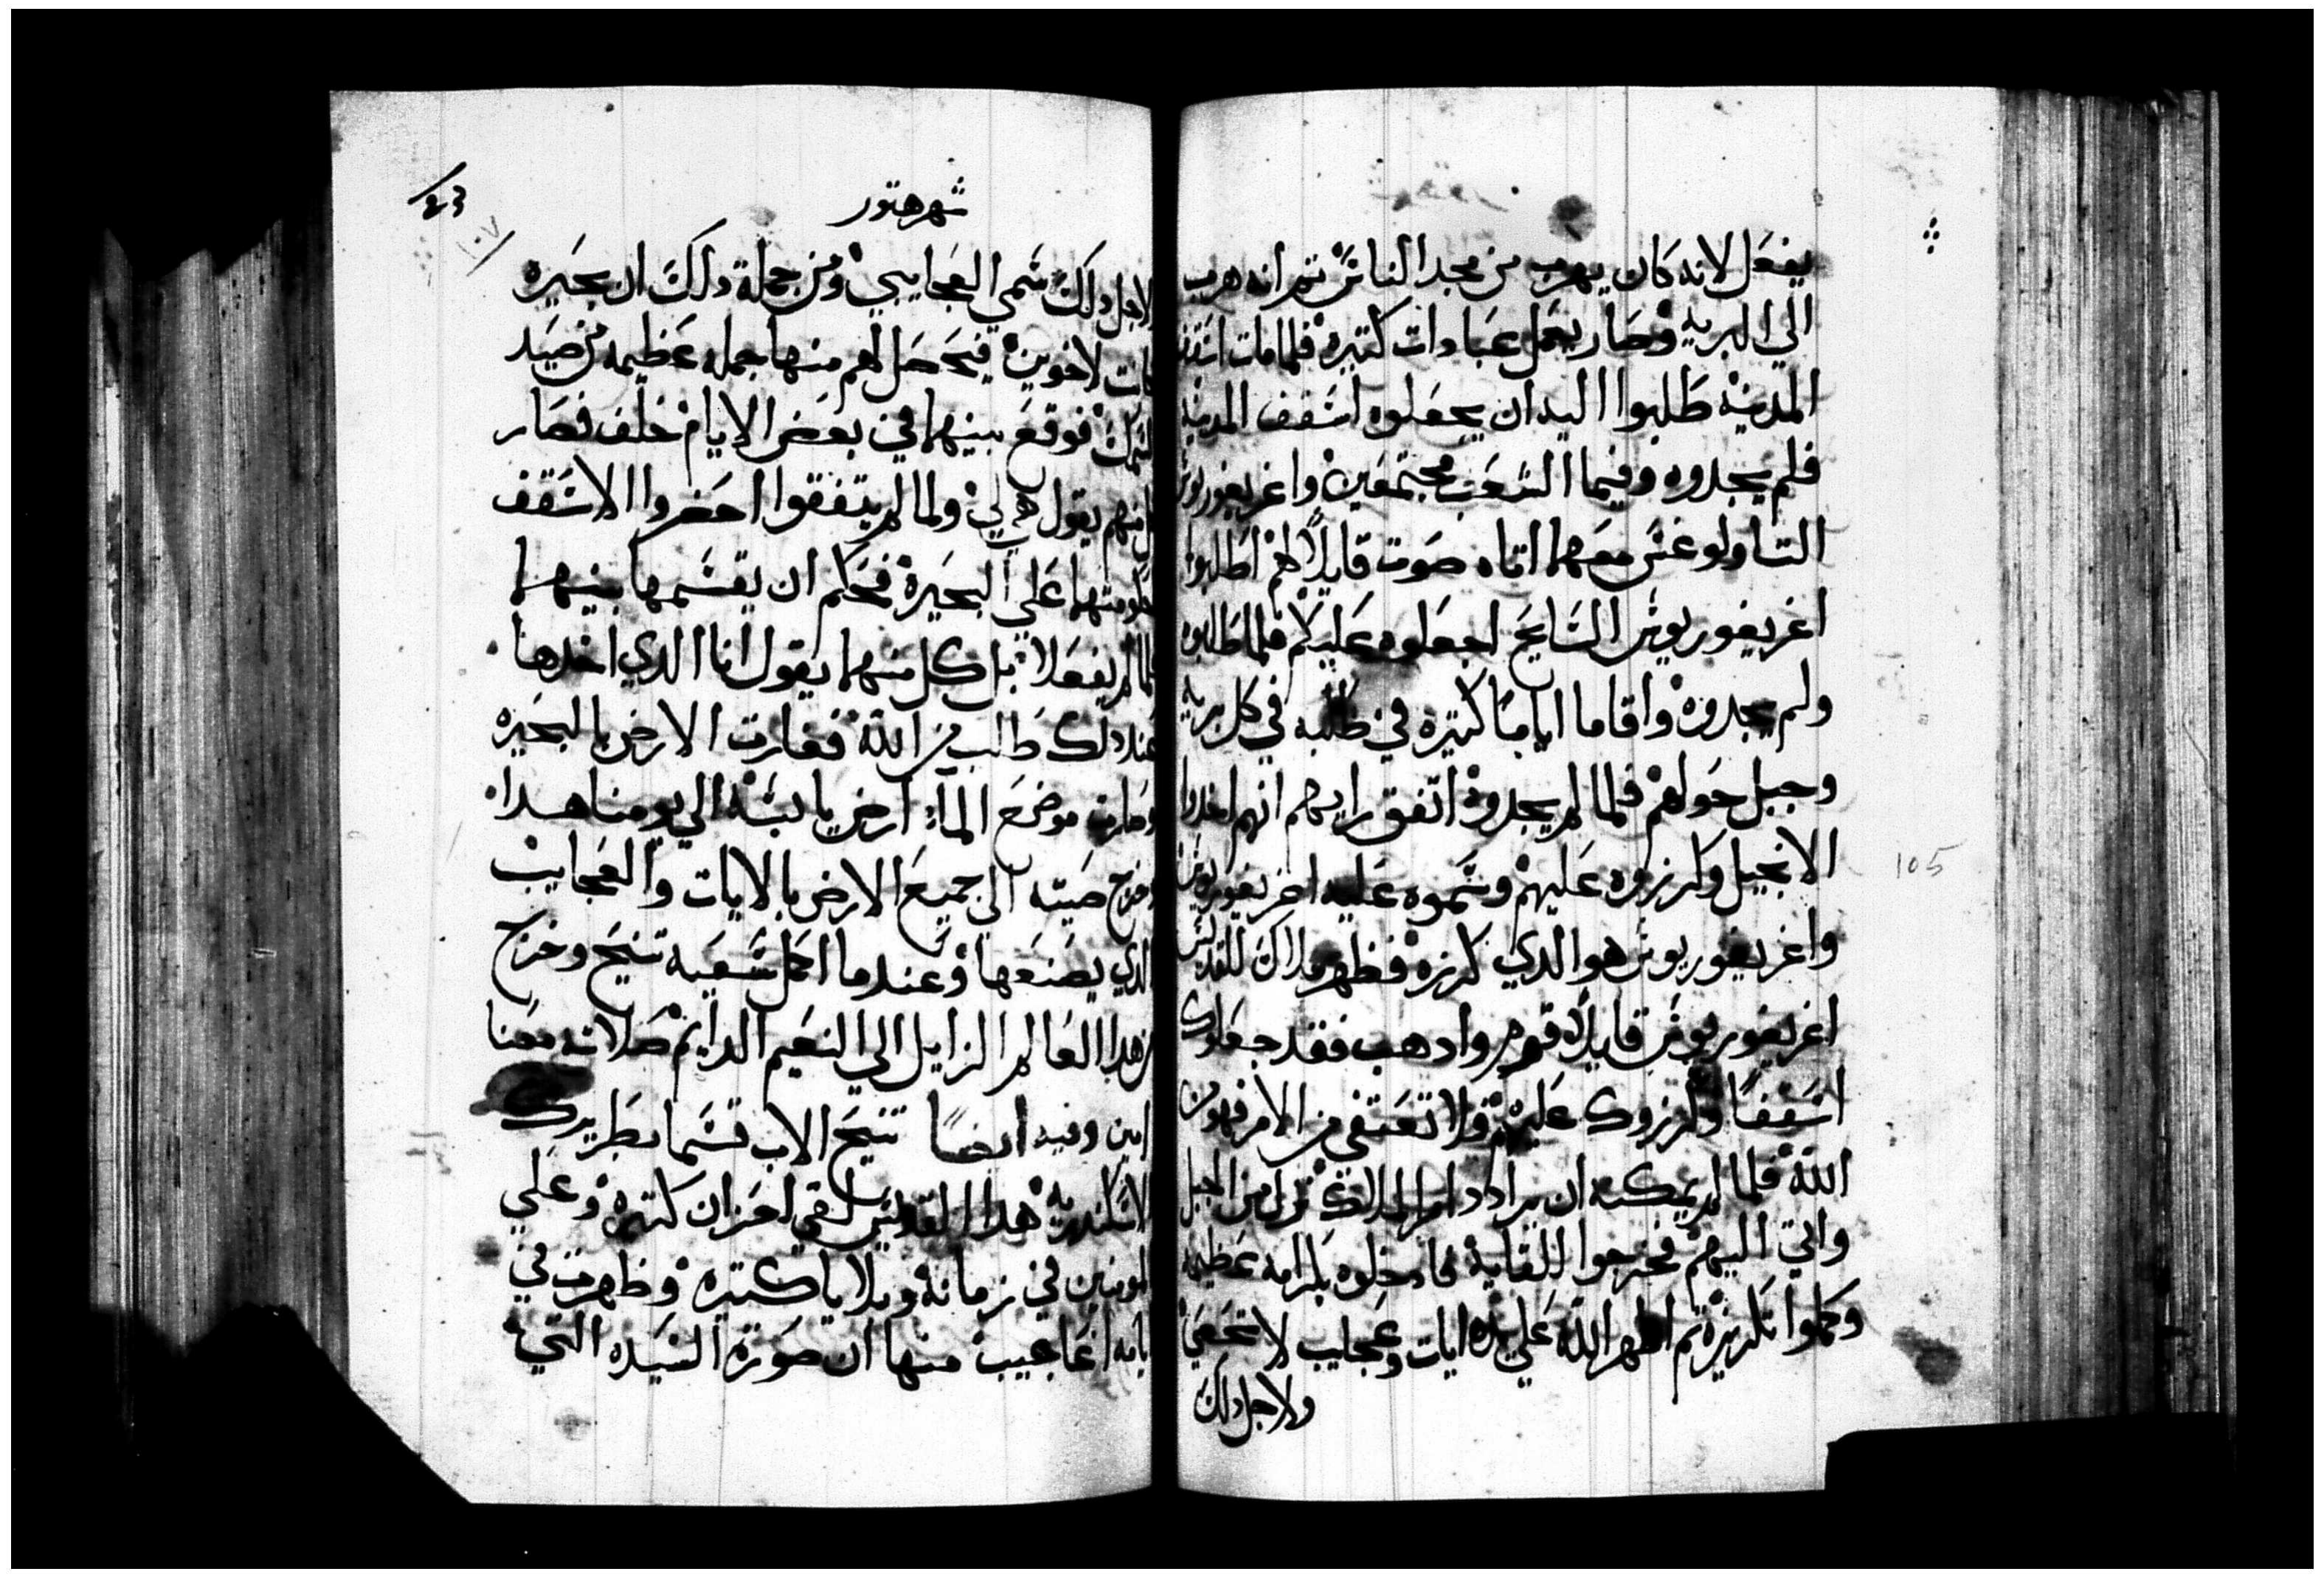 يفعل لانه كان يهرب من مجد الناس ثم انه هرب
الي البريه وصار يعمل عبادات كتيره فلما مات اسقف
المدينه طلبوا اليه ان يجعلوه اسقف المدينه
فلم يجدوه وفيما الشعب مجتمعين واغريغوريوس
التاولوغس معهما اتاه صوت قايلا لهم اطلبوا
اغريغوريوس السايح اجعلوه عليكم فلما طلبوه
ولم يجدوه واقاما اياما كتيره في طلبه في كل بريه
وجبل حولهم فلما لم يجدوه اتفق رايهم انهم اخدوا
الانجيل وكرزوه عليهم وسموه عليه اغريغوريوس
واغريغوريوس هو الدي كرزه فظهر ملاك للقديس
اغريغوريوس قايلا قوم وادهب فقد جعلوك
اسقفا وكرزوك عليهم فلا تعتفي من الامر فهو من
الله فلما لم يمكنه ان يرادد امر الملاك نزل من الجبل
واتي اليهم فخرجوا للقايه فادخلوه بكرامه عظيمه
وكملوا تكريزه ثم اظهر الله علي يده ايات وعجايب لا تحصي
ولاجل دلك
١٠٧
شهر هتور
لاجل دلك سمي العجايبي ومن جملة دلك ان بحيره
كانت لاخوين فيتحصل لهم منها جمله عظيمه من صيد
السمك فوقع بينهما في بعض الايام خلف فصار
كل منهم يقول هي لي ولما لم يتفقوا احضروا الاسقف
علي البحيره فحكم ان يقسمها بينهما
فلما لم يفعلا بل كل منهما يقول انا الدي اخدها
عند دلك طلب من الله فغارت الارض بالبحيره
وصارت موضع الماء ارض يابسه الي يومنا هدا
وخرج صيته الي جميع الارض بالايات والعجايب
الدي يصنعها وعندما اكمل سعيه تنيح وخرج
من هدا العالم الزايل الي النعيم الدايم صلاته معنا
امين وفيه ايضا تنيح الاب قسما بطريرك
الاسكندريه هدا القديس لقي احزان كتيره وعلي
المومنين في زمانه وبلايا كتيره وظهرت في
ايامه اعاجيب منها ان صورة السيده التي
105